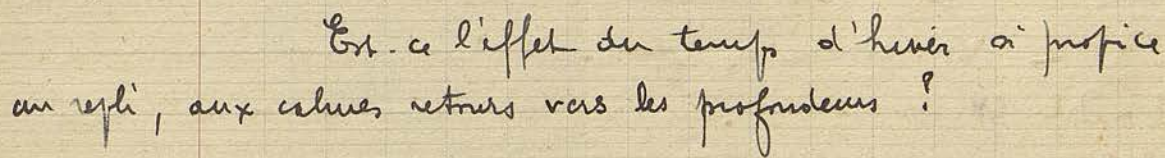 Est-ce l'effet du temps d'hiver si propice
au repli, aux calmes retours vers les profondeurs ?